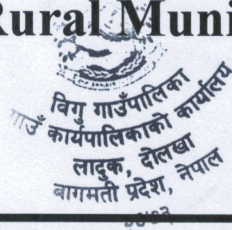 Rural Muni
विगु गाउँपालिका
गाउँ कार्यपालिकाको कार्यालय
लादुक, दोलखा
बागमती प्रदेश, नेपाल
२०७३